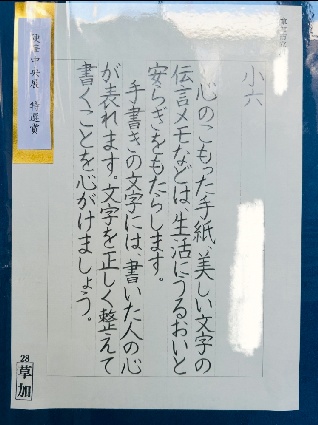 小六
心のこもった手紙、美しい文字の
伝言メモなどは、生活にうるおいと
安らぎをもたらします。
手書きの文字には、書いた人の心
が表れます。文字を正しく整えて
書くことを心がけましょう。
特選賞
28
草加